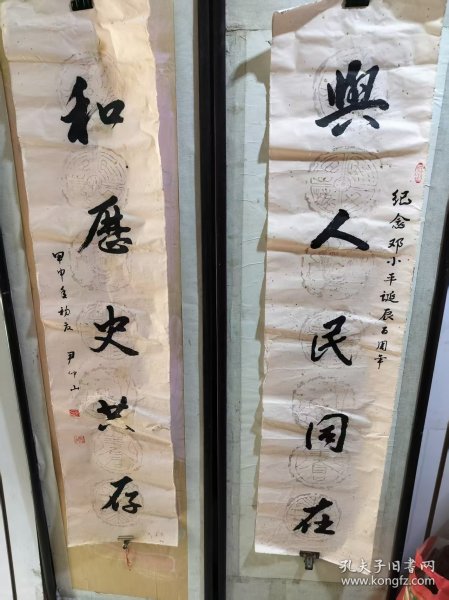 興人民同在
纪念邓小平诞辰百周年
和歷史共存
甲申年初夏
尹仲山
孔夫子旧书网
www.kongfz.com